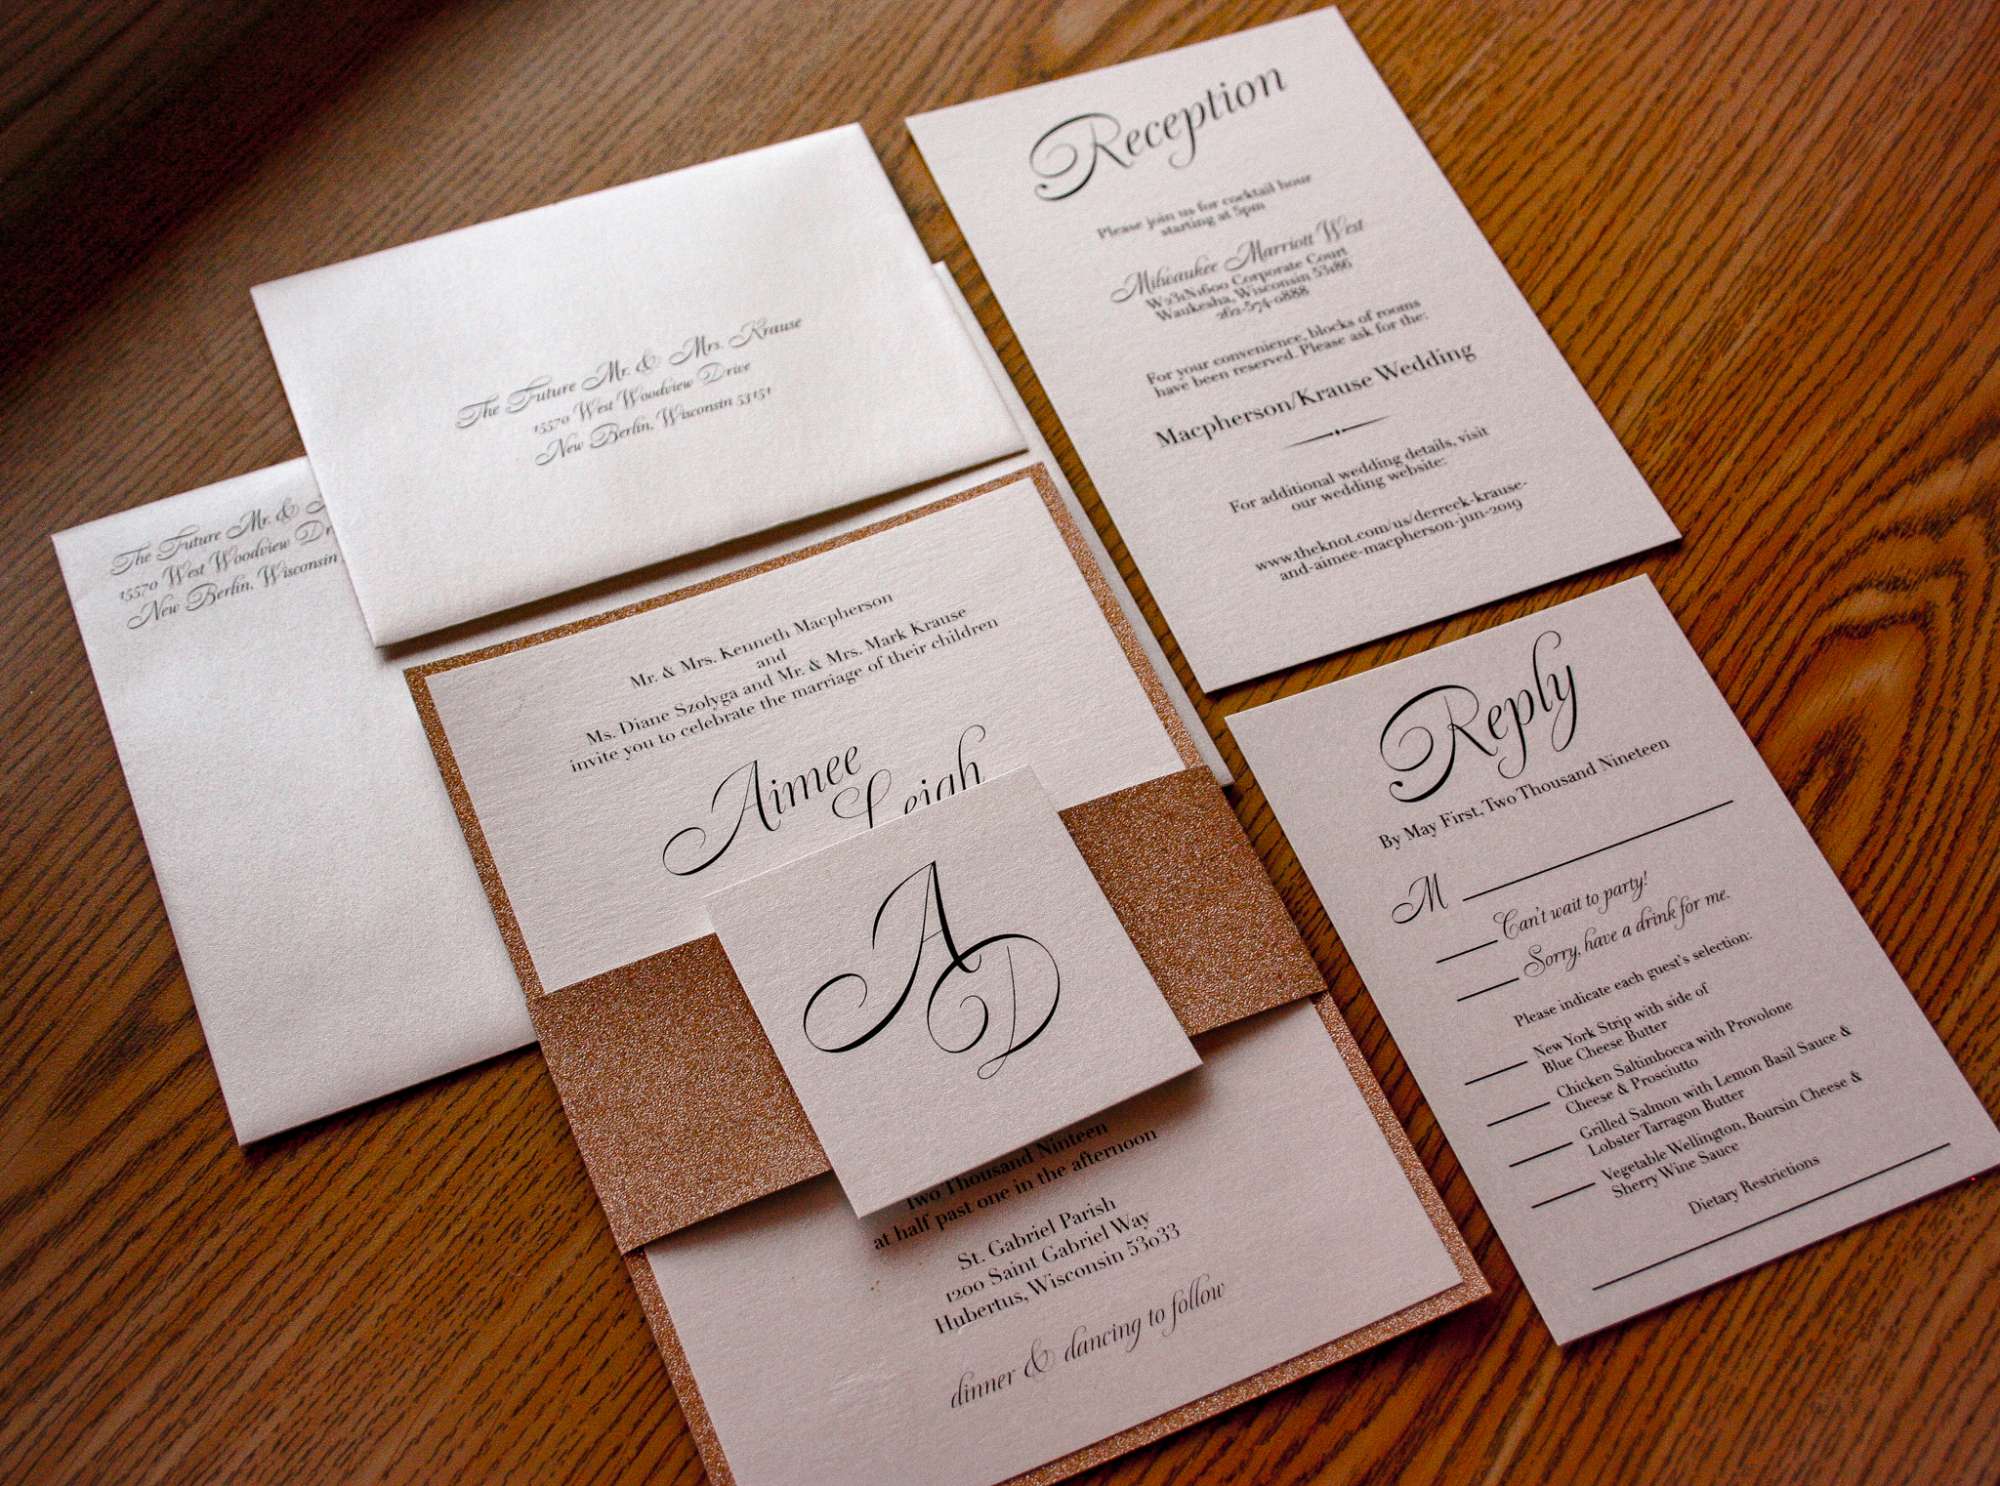 The Future Mr. & Mrs. Krause
15570 West Woodview Drive
New Berlin, Wisconsin 53151
The Future Mr. &
15570 West Woodview
New Berlin, Wisconsin
Mr. & Mrs. Kenneth Macpherson
and
Ms. Diane Szolyga and Mr. & Mrs. Mark Krause
invite you to celebrate the marriage of their children
Aimee
Leigh
A
D
Two Thousand Ninteen
at half past one in the afternoon
St. Gabriel Parish
1200 Saint Gabriel Way
Hubertus, Wisconsin 53033
dinner & dancing to follow
Reception
Please join us for cocktail hour
starting at 5pm
Milwaukee Marriott West
W231N1600 Corporate Court
Waukesha, Wisconsin 53186
262-574-0888
For your convenience, blocks of rooms
have been reserved. Please ask for the:
Macpherson/Krause Wedding
For additional wedding details, visit
our wedding website:
www.theknot.com/us/derreck-krause-
and-aimee-macpherson-jun-2019
Reply
By May First, Two Thousand Nineteen
M
Can't wait to party!
Sorry, have a drink for me.
Please indicate each guest's selection:
New York Strip with side of
Blue Cheese Butter
Chicken Saltimbocca with Provolone
Cheese & Prosciutto
Grilled Salmon with Lemon Basil Sauce &
Lobster Tarragon Butter
Vegetable Wellington, Boursin Cheese &
Sherry Wine Sauce
Dietary Restrictions